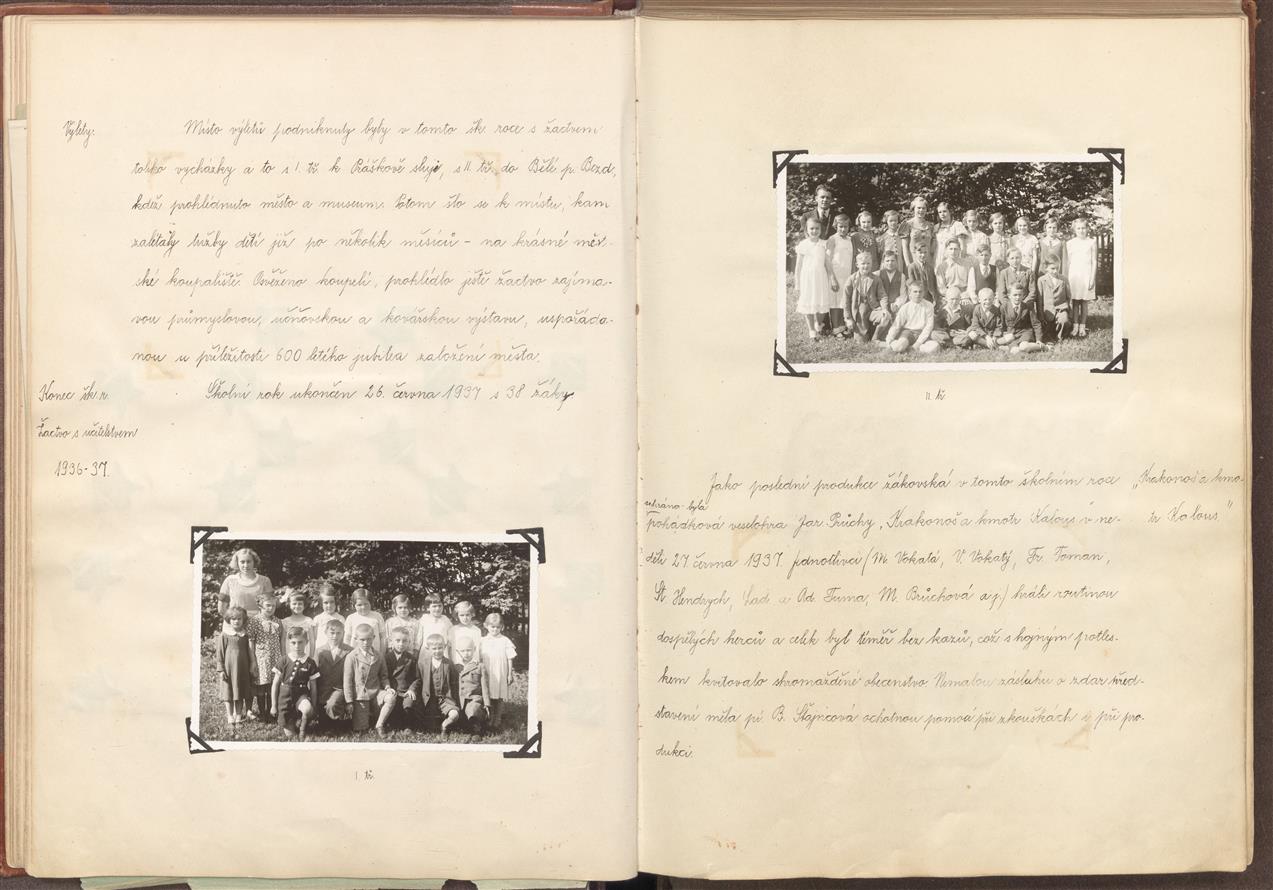 Výlety.
Místo výletů podniknuty byly v tomto šk. roce s žactvem
toliko vycházky a to s I. tř. k Práškově sluji, s II. tř. do Bělé p. Bezd.,
kdež prohlédnuto město a museum. Potom šlo se k místu, kam
zalétaly tužby dětí již po několik měsíců - na krásné měs-
ské koupaliště. Osvěženo koupelí, prohlédlo ještě žactvo zajíma-
vou průmyslovou, učňovskou a kovářskou výstavu, uspořáda-
nou u příležitosti 600 letého jubilea založení města.
Konec šk. r.
Školní rok ukončen 26. června 1937 s 38 žáky.
Žactvo s učitelstvem
1936-37.
I. tř.
II. tř.
Jako poslední produkce žákovská v tomto školním roce
sehrána byla
pohádková veselohra Jar. Průchy „Krakonoš a kmotr Kalous v ne-
děli 27. června 1937. Jednotlivci (M. Vokatá, V. Vokatý, Fr. Toman,
St. Hendrych, Lad. a Ad. Tuma, M. Brůchová a j.) hráli routinou
dospělých herců a celek byl téměř bez kazů, což s hojným potles-
kem kvitovalo shromážděné obecenstvo. Nemalou zásluhu o zdar před-
stavení měla pí. B. ochotnou pomocí při zkouškách i při pro-
dukci.
„Krakonoš a kmo-
tr Kalous."